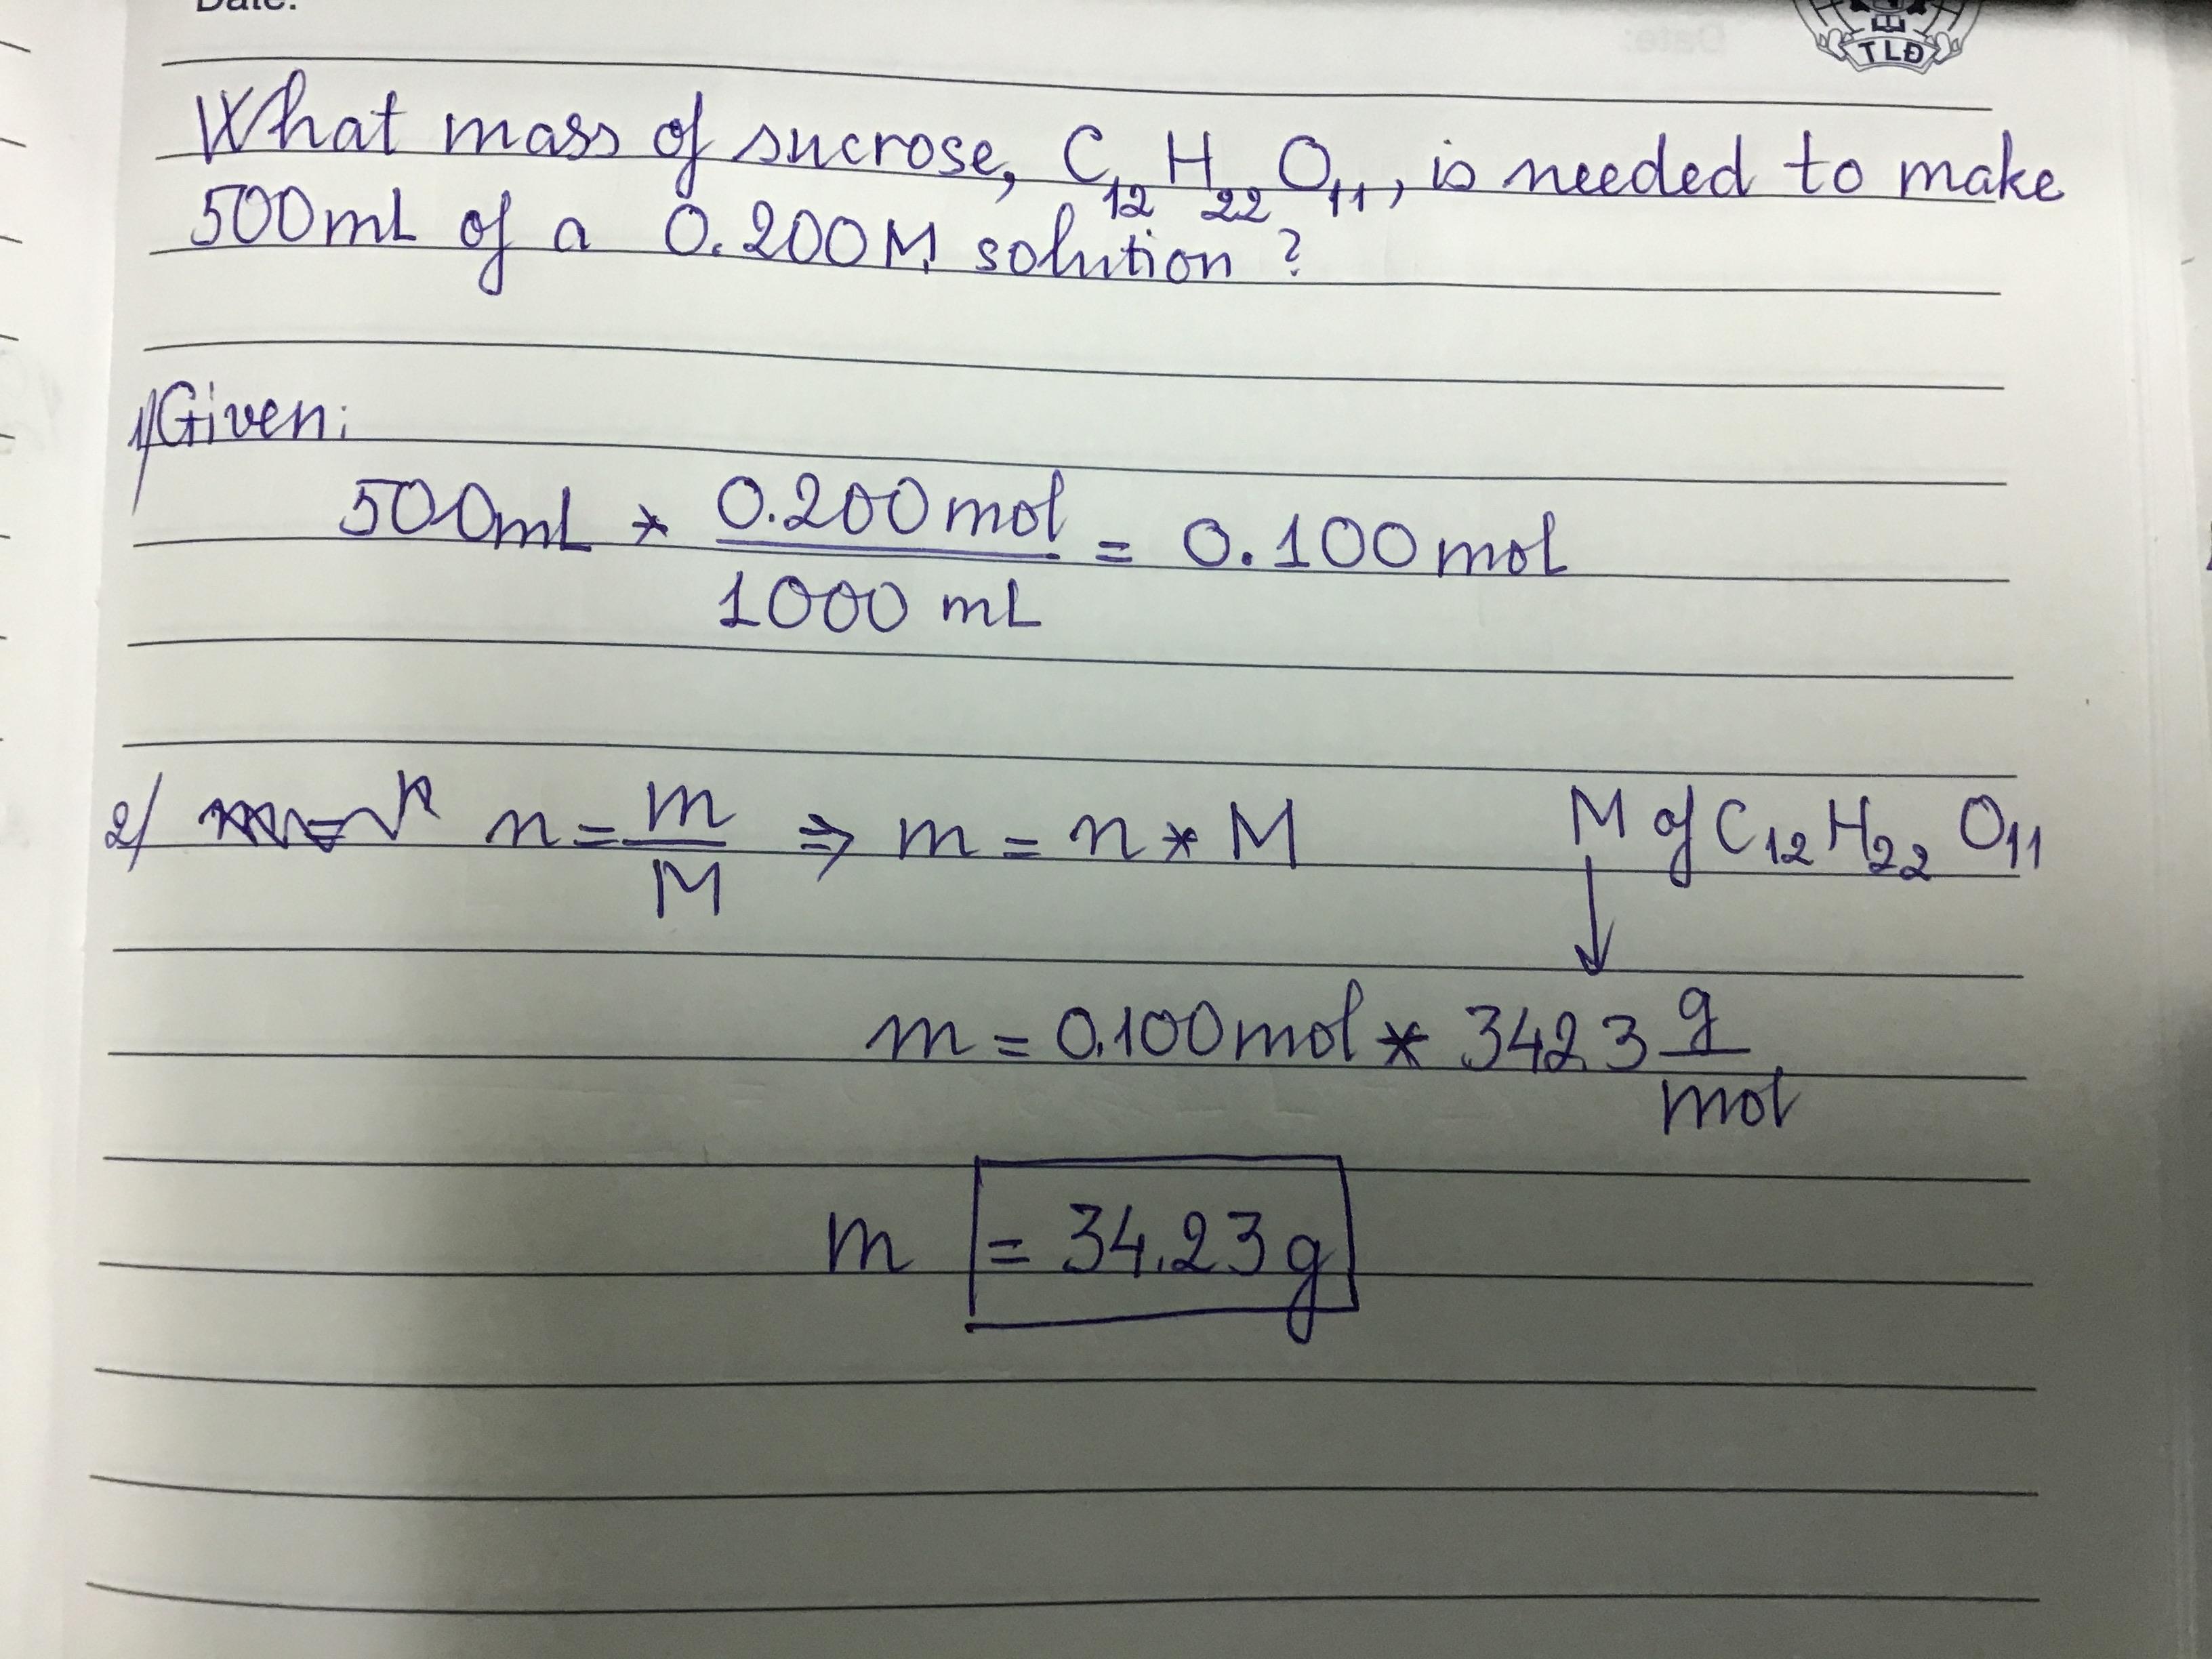 Date:
TLĐ
What mass of sucrose, C₁₂H₂₂O₁₁, is needed to make
500mL of a 0.200M solution?
1/Given:
500mL * 0.200mol / 1000 mL = 0.100mol
2/ n = m / M ⇒ m = n * M M of C₁₂H₂₂O₁₁
↓
m = 0.100mol * 342.3 g / mol
m = 34.23g